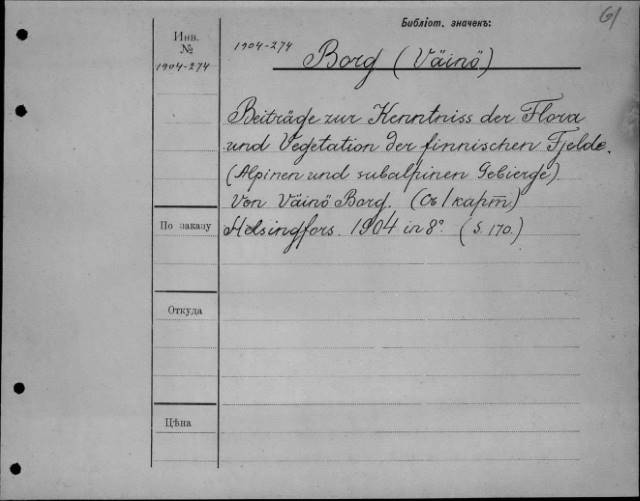 Библіот. значекъ:
61
Инв.
№
1904-274
1904-274
Borg (Väinö)
Beiträge zur Kenntniss der Flora
und Vegetation der finnischen Fjelde.
(Alpinen und subalpinen Gebierge).
Von Väinö Borg. (Съ 1 карт)
Helsingfors. 1904 in 8°. (S. 170.)
По заказу
Откуда
Цѣна